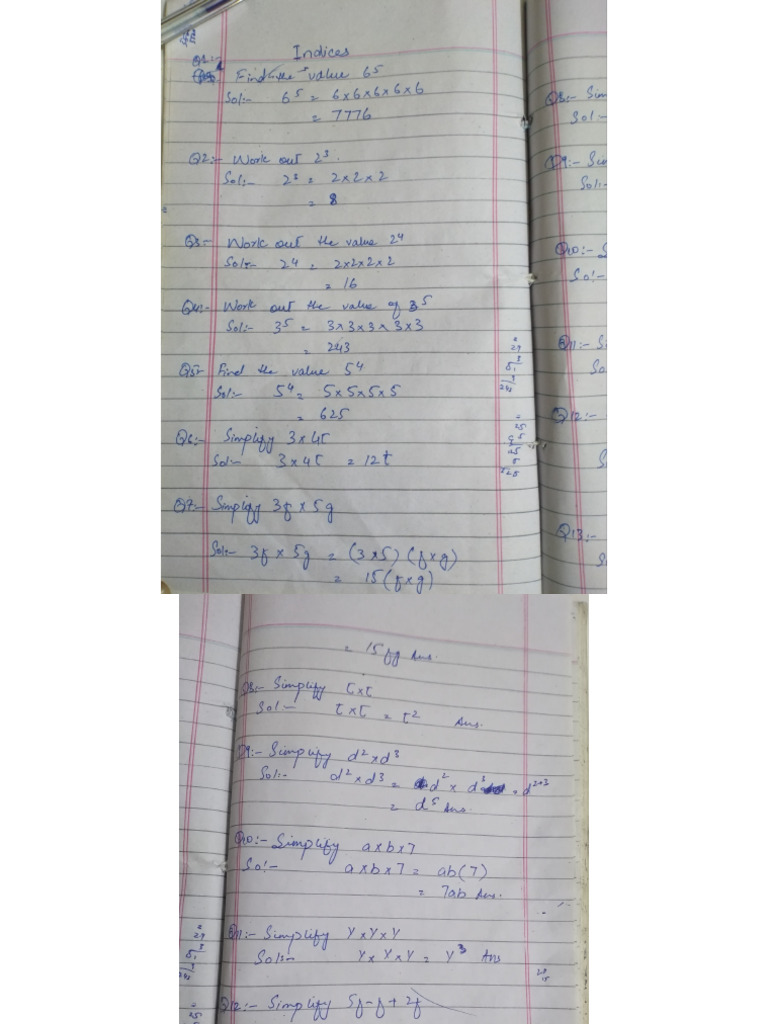 Indices
Q1:- Find the value 6⁵
Sol:- 6⁵ = 6×6×6×6×6
= 7776
Q2:- Work out 2³.
Sol:- 2³ = 2×2×2
= 8
Q3:- Work out the value 2⁴
Sol:- 2⁴ = 2×2×2×2
= 16
Q4:- Work out the value of 3⁵
Sol:- 3⁵ = 3×3×3×3×3
= 243
Q5:- Find the value 5⁴
Sol:- 5⁴ = 5×5×5×5
= 625
Q6:- Simplify 3×4t
Sol:- 3×4t = 12t
Q7:- Simplify 3f × 5g
Sol:- 3f × 5g = (3×5) (f×g)
= 15(f×g)
Q8:- Sim
Sol:-
Q9:- Sim
Sol:-
Q10:- S
Sol:-
Q11:- Si
So
Q12:-
S
Q13:-
S
= 15fg Ans.
Q8:- Simplify t×t
Sol:- t×t = t² Ans.
Q9:- Simplify d²×d³
Sol:- d²×d³ = d² × d³ = d²⁺³
= d⁵ Ans.
Q10:- Simplify a×b×7
Sol:- a×b×7 = ab(7)
= 7ab Ans.
Q11:- Simplify Y×Y×Y
Sol:- Y×Y×Y = Y³ Ans
Q12:- Simplify 5f-f+2f